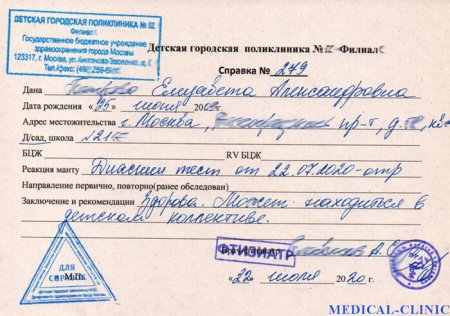 ДЕТСКАЯ ГОРОДСКАЯ ПОЛИКЛИНИКА №
Филиал
Государственное бюджетное учреждение
здравоохранения города Москвы
123317, г. Москва, ул.
Тел./факс: (495) 256-
Детская городская поликлиника № -Филиал
Справка № 279
Дана Елизавета Александровна
Дата рождения «25» июня
Адрес местожительства г. Москва, пр-т, д.
Д/сад, школа №21
БЦЖ RV БЦЖ
Реакция манту Диаскин тест от 22.07.2020-отр
Направление первично, повторно(ранее обследован)
Заключение и рекомендации Здорова. Может находиться в
детском коллективе.
ФТИЗИАТР
ДЛЯ
СПРАВОК
М.П.
«22» июля 2020 г.
MEDICAL-CLINIC